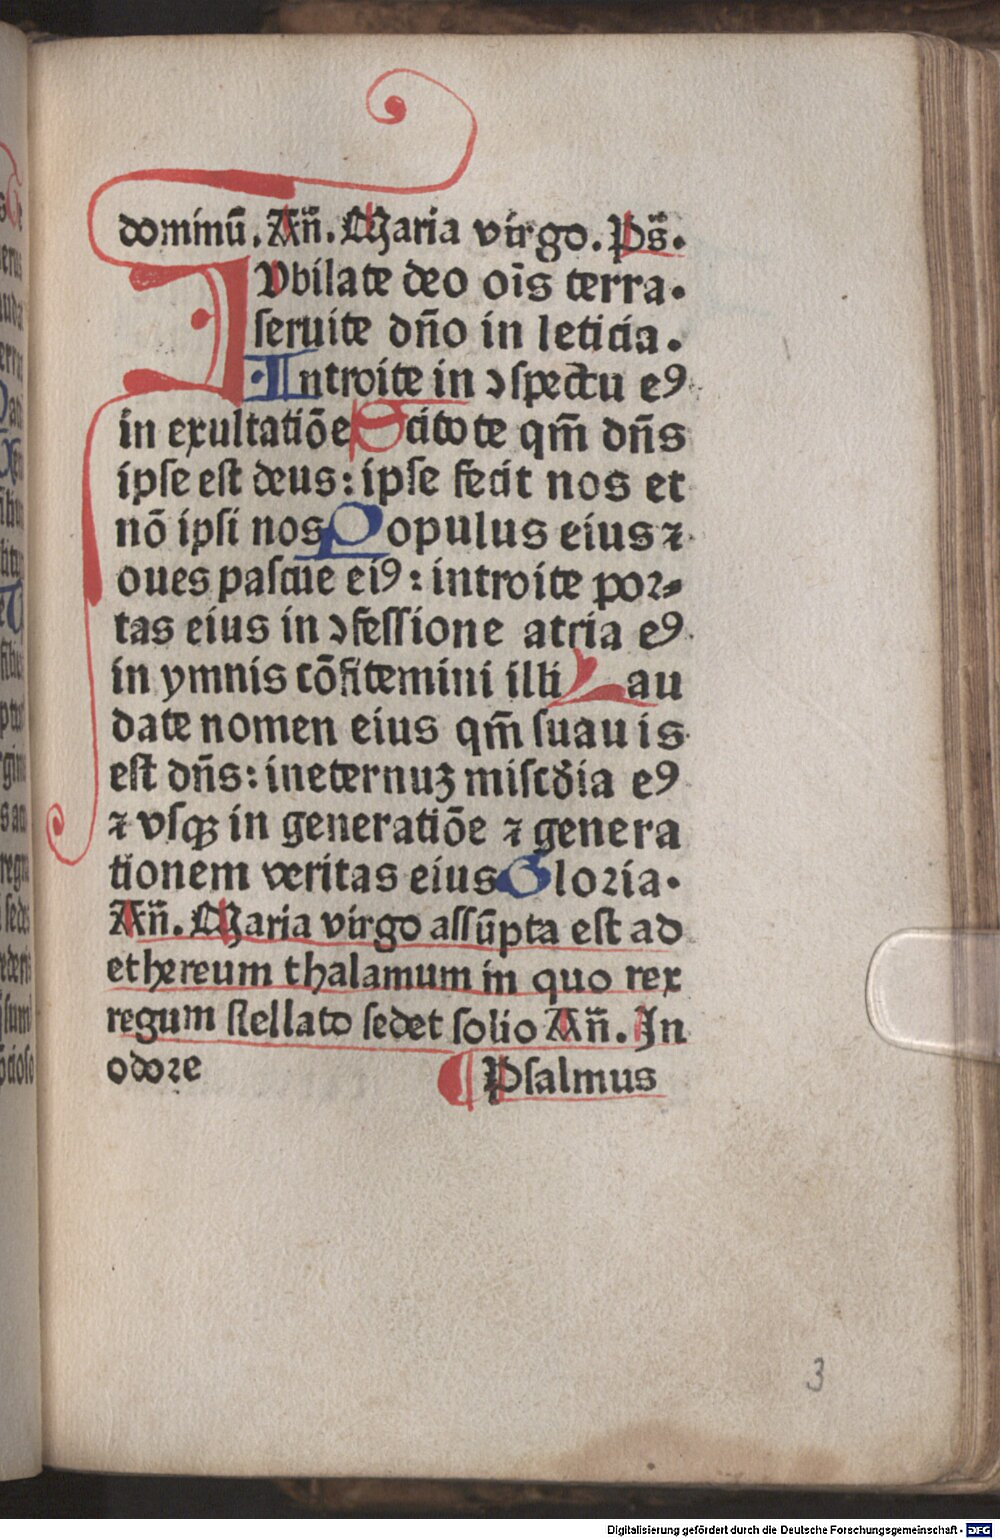 dominū. Añ. Maria virgo. Ps̄.
IVbilate deo oīs terra.
seruite dño in leticia.
Introite in ɔspectu eꝰ
in exultatiōe Scitote qm̄ dñs
ipse est deus: ipse fecit nos et
nō ipsi nos Populus eius ⁊
oues pascue eiꝰ: introite por⸗
tas eius in ɔfessione atria eꝰ.
in ymnis cōfitemini illi Lau
date nomen eius qm̄ suauis
est dñs: ineternuȝ miscd̄ia eꝰ
⁊ vsqꝫ in generatiōe ⁊ genera
tionem veritas eius Gloria.
Añ. Maria virgo assūpta est ad
ethereum thalamum in quo rex
regum stellato sedet solio Añ. In
odore ¶ Psalmus
3
Digitalisierung gefördert durch die Deutsche Forschungsgemeinschaft - DFG